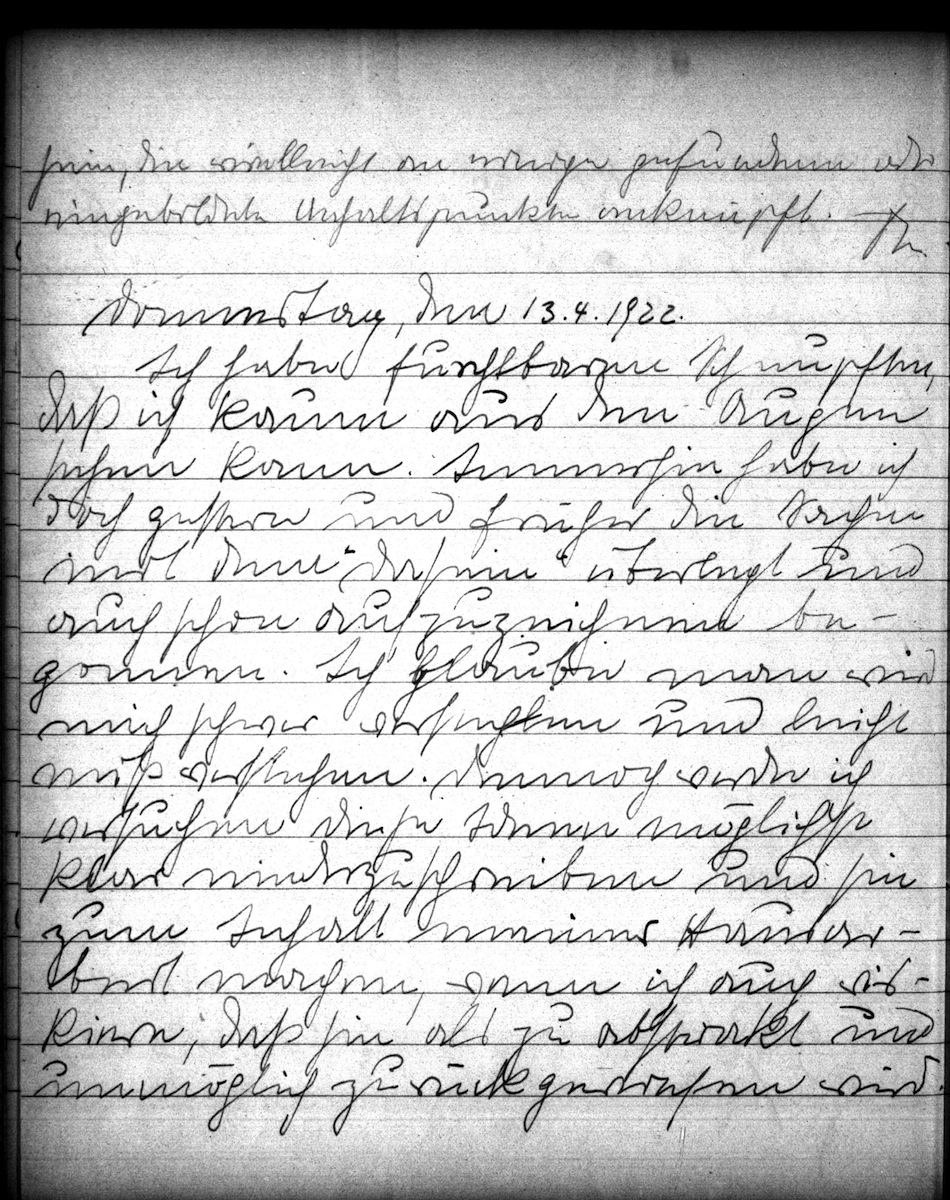 sein, die vielleicht an einige gefundene oder
eingebildete Anhaltspunkte anknüpft. —
Donnerstag, den 13.4.1922.
Ich habe furchtbaren Schnupfen,
daß ich kaum aus den Augen
sehen kann. Immerhin habe ich
doch gestern und früher die Sache
mit dem "Dasein" überlegt und
auch schon aufzuzeichnen be-
gonnen. Ich glaube man wird
mich schwer verstehen und leicht
mißverstehen. Dennoch werde ich
versuchen diese Ideen möglichst
klar niederzuschreiben und sie
zum Inhalt meiner Hausar-
beit machen, wenn ich auch ris-
kiere, daß sie als zu abstrakt und
unmöglich zurückgewiesen wird